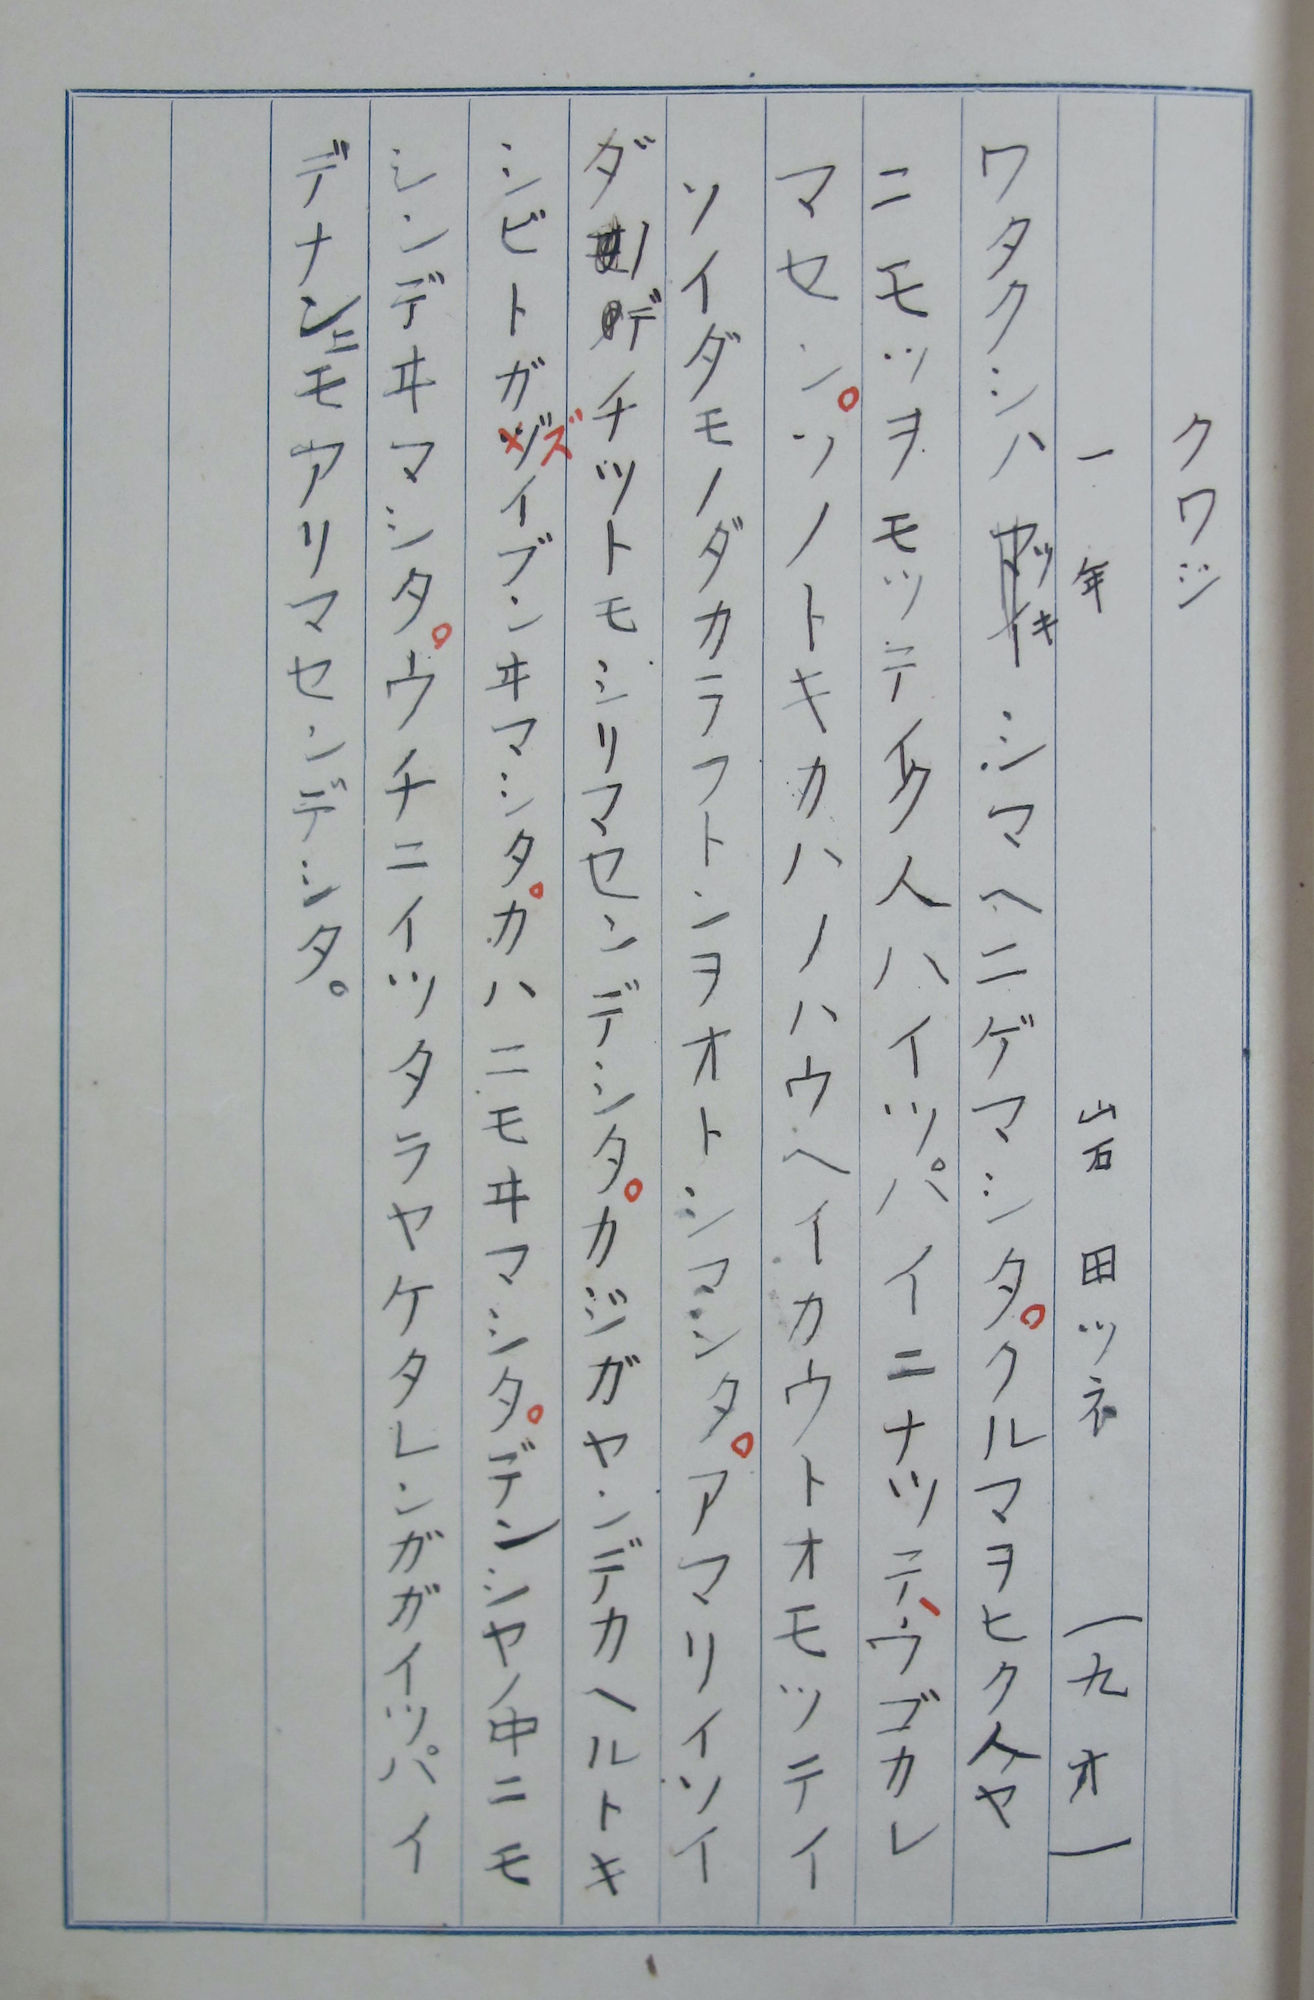 クワジ
一年 岩田ツネ (一九オ)
ワタクシハツキシマヘニゲマシタ。クルマヲヒク人ヤ
ニモツヲモツテイク人ハイツパイイニナツテ、ウゴカレ
マセン。ソノトキカハノハウヘイカウトオモツテイ
ソイダモノダカラフトンヲオトシマシタ。アマリイソイ
ダノデチツトモシリマセンデシタ。カジガヤンデカヘルトキ
シビトガヅズイブンヰマシタ。カハニモヰマシタ。デンシヤノ中ニモ
シンデヰマシタ。ウチニイツタラヤケタレンガガイツパイ
デナンニモアリマセンデシタ。